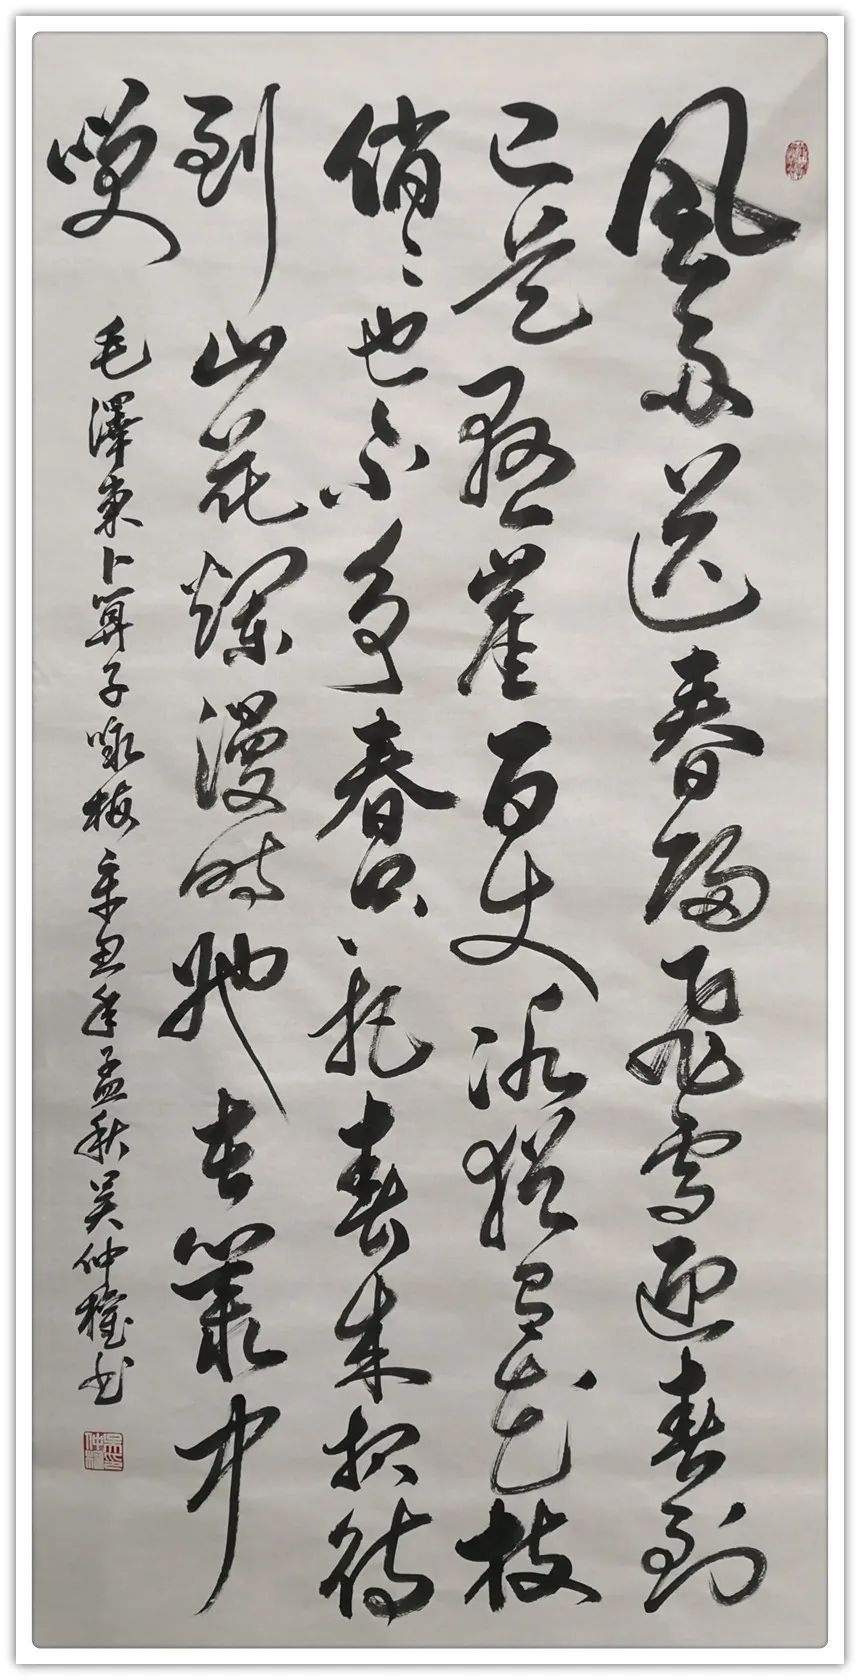 風雨送春歸飛雪迎春到
已是懸崖百丈冰猶有花枝
俏〻也不爭春只把春來报待
到山花爛漫時她在叢中
笑
毛澤東卜算子咏梅辛丑年孟秋吴仲书